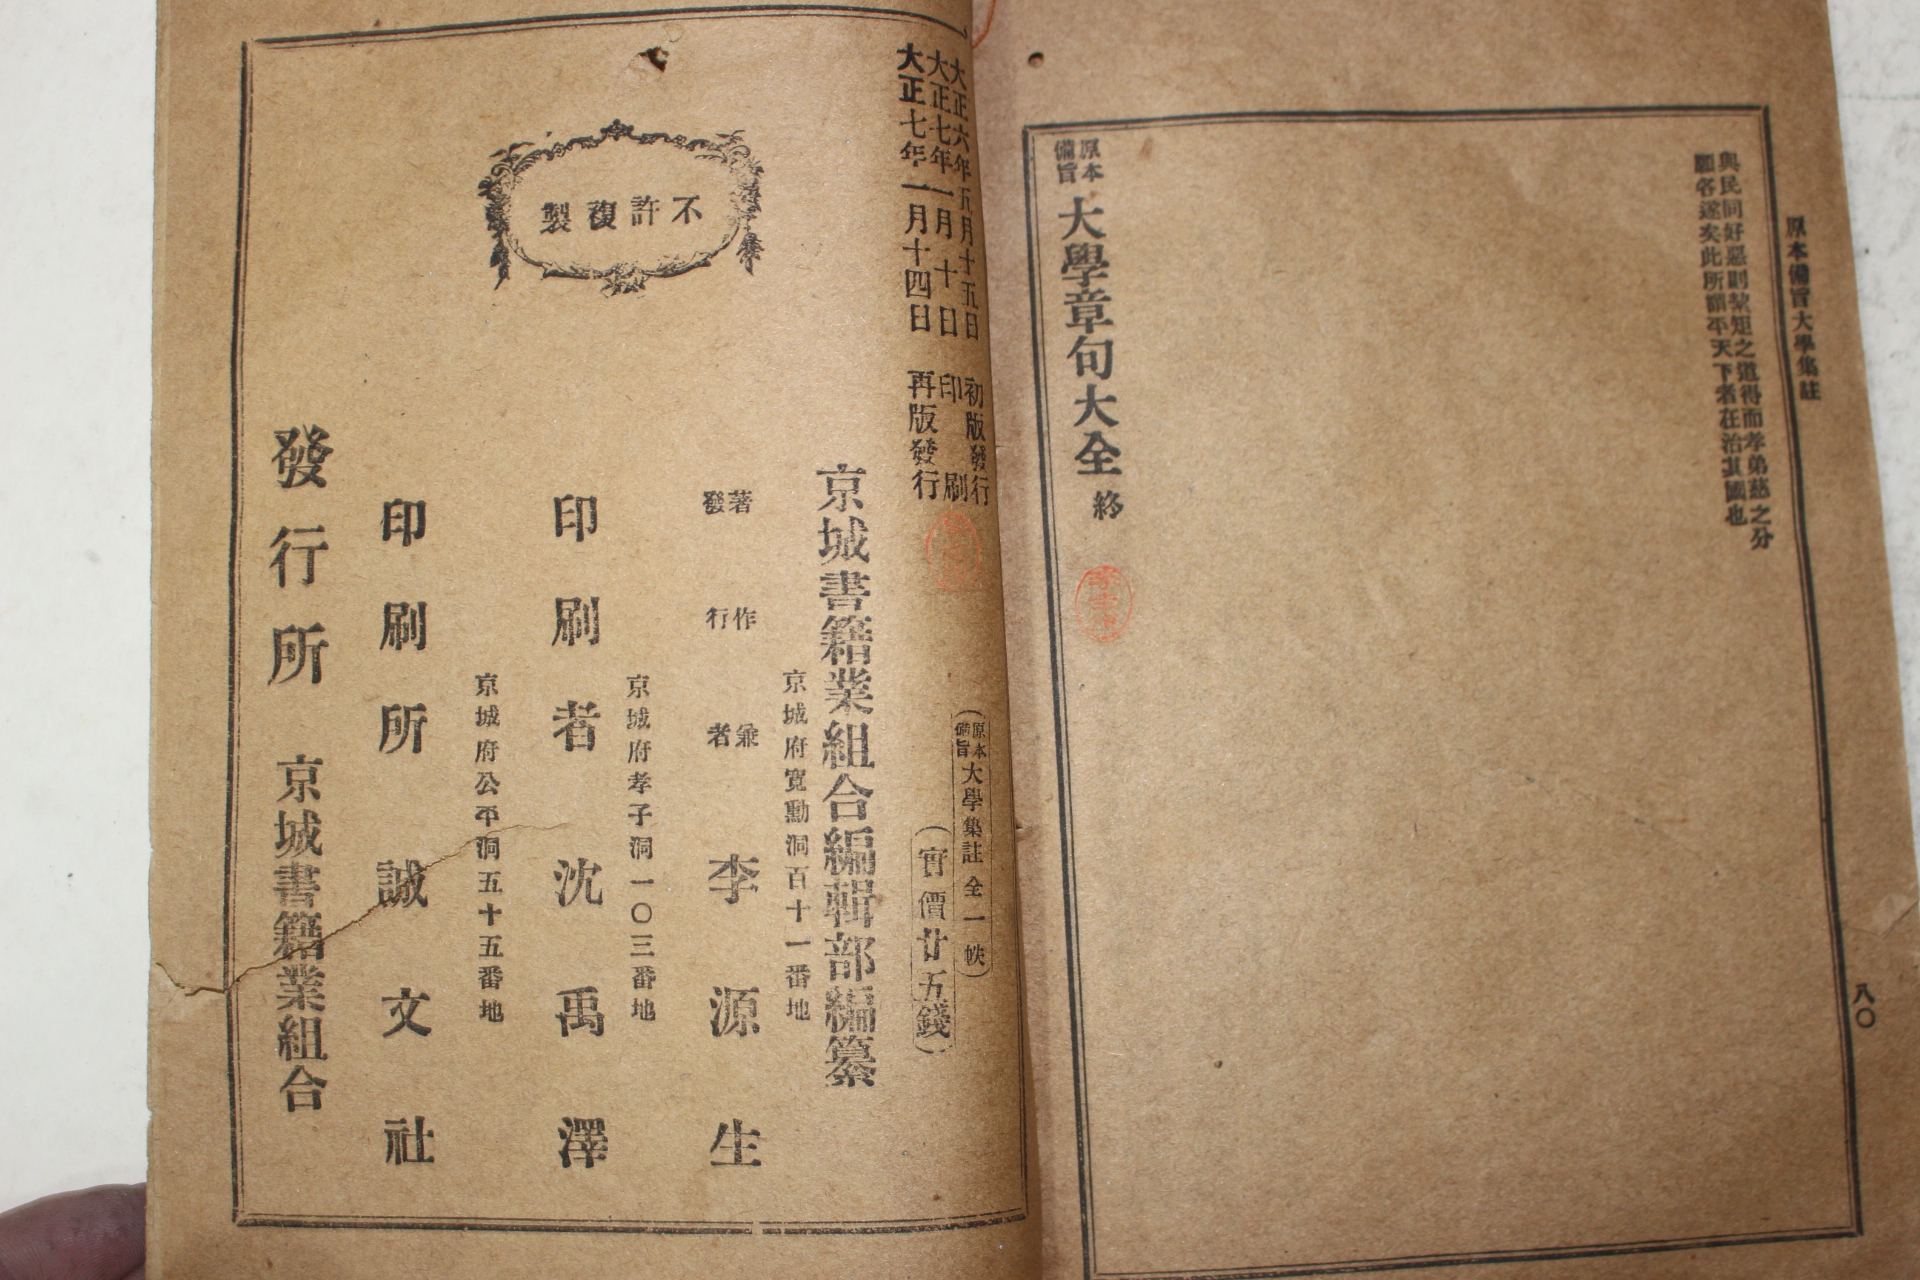 原本備旨大學集註
與民同好惡則絜矩之道得而孝弟慈之分
願各遂矣此所謂平天下者在治其國也
原本備旨 大學章句大全 終
八〇
大正六年五月十五日 初版發行
大正七年一月十日 印刷
大正七年一月十四日 再版發行
不許複製
(原本備旨 大學集註 全一帙)
(實價廿五錢)
京城書籍業組合編輯部編纂
京城府寬勳洞百十一番地
著作兼
發行者 李源生
京城府孝子洞一〇三番地
印刷者 沈禹澤
京城府公平洞五十五番地
印刷所 誠文社
發行所 京城書籍業組合